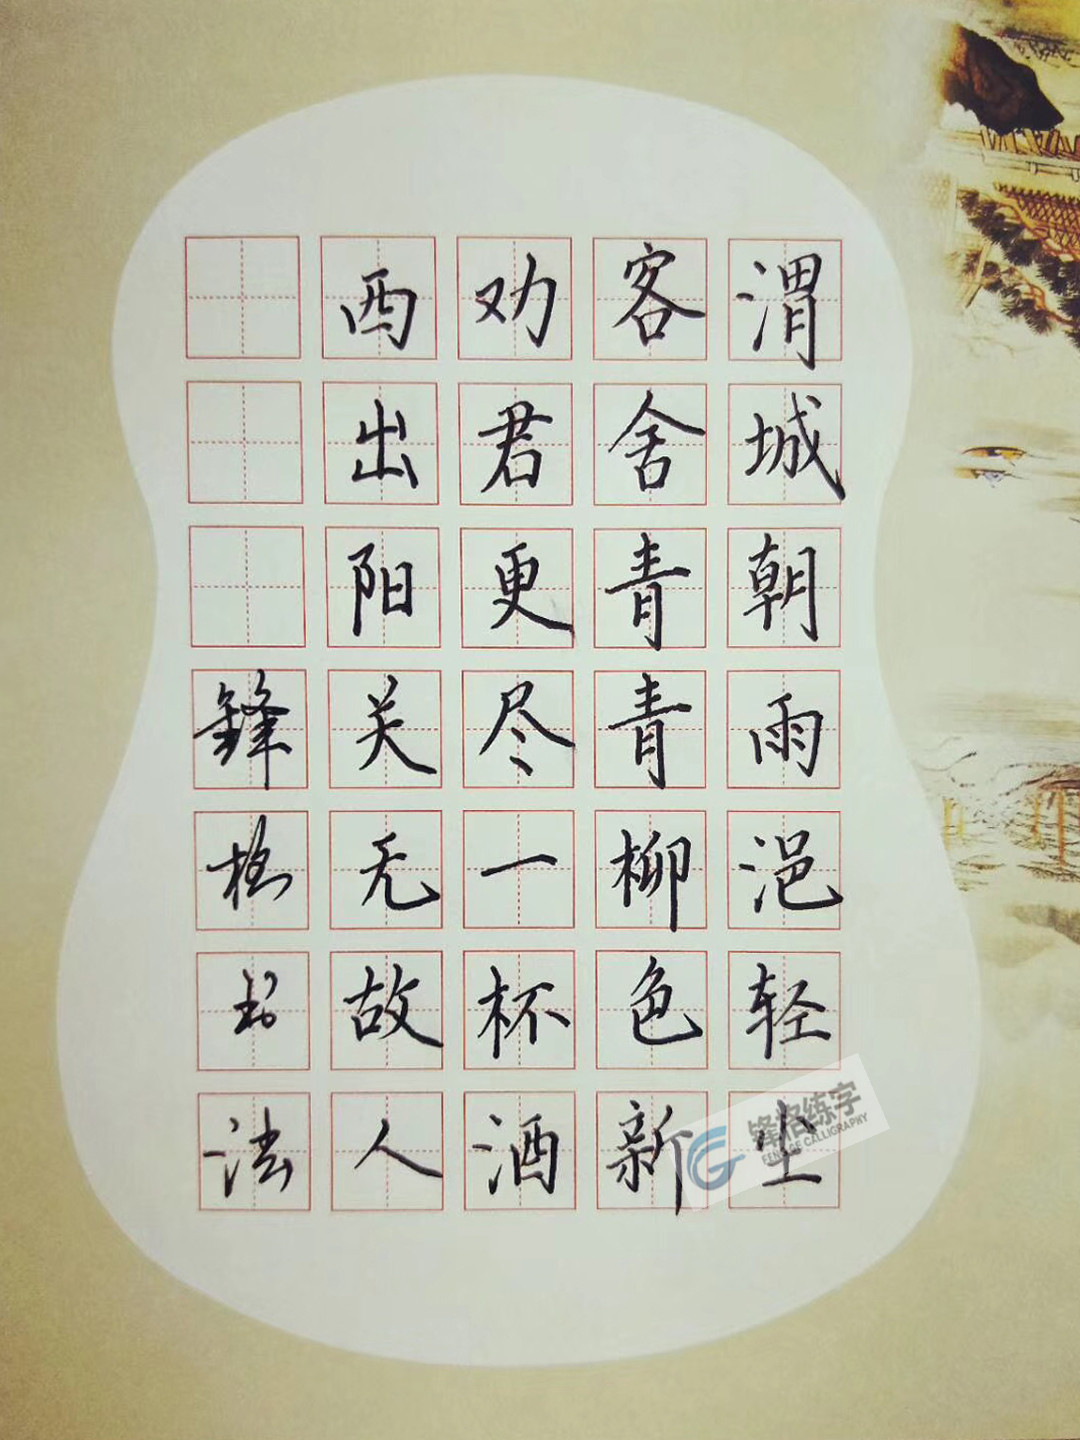 渭城朝雨浥轻尘
客舍青青柳色新
劝君更尽一杯酒
西出阳关无故人
鋒格书法
锋格练字
FENGGE CALLIGRAPHY